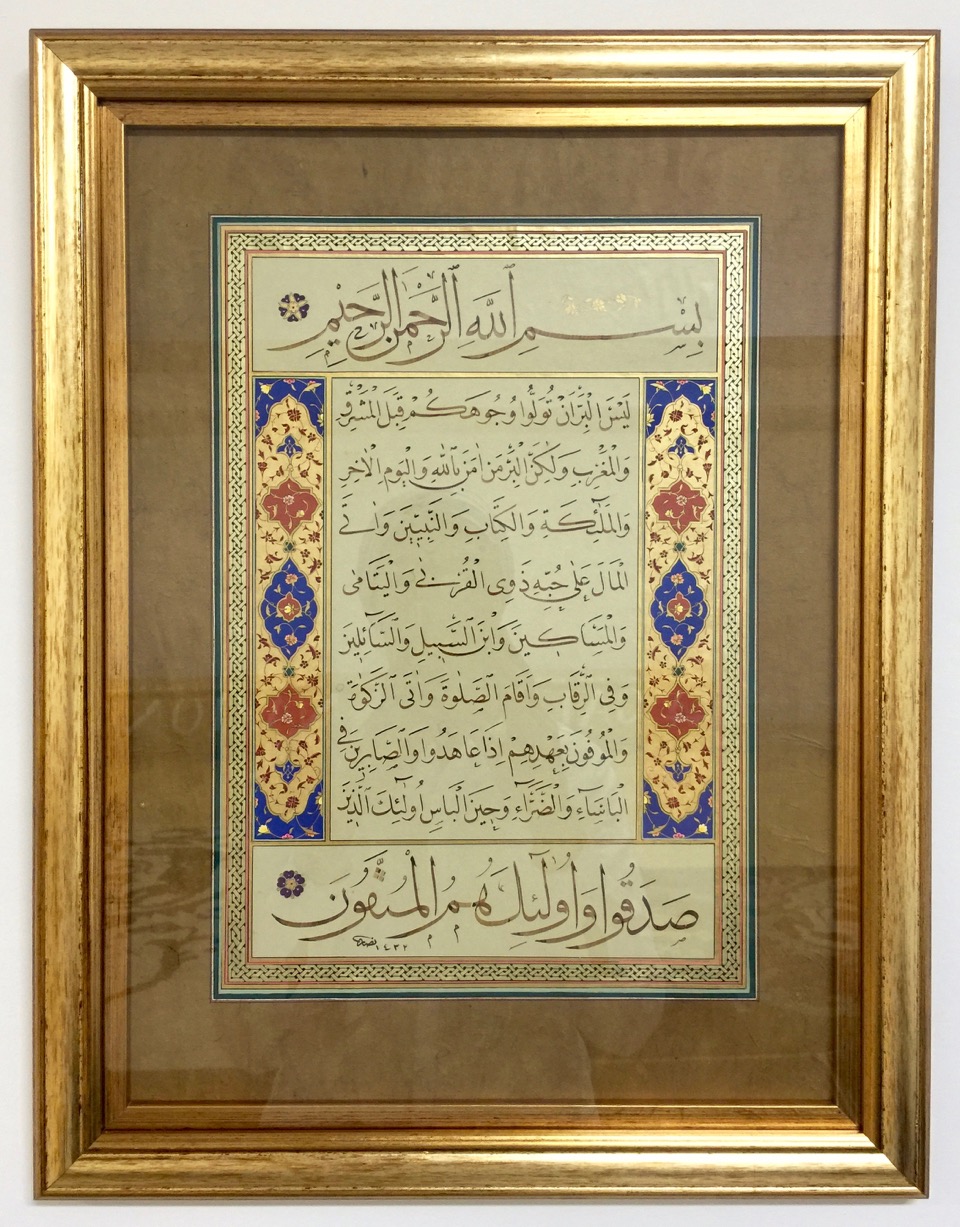 بِسْمِ ٱللَّهِ ٱلرَّحْمٰنِ ٱلرَّحِيْمِ
لَيْسَ الْبِرَّ اَنْ تُوَلُّوا وُجُوهَكُمْ قِبَلَ الْمَشْرِقِ
وَالْمَغْرِبِ وَلٰكِنَّ الْبِرَّ مَنْ اٰمَنَ بِاللّٰهِ وَالْيَوْمِ الْاٰخِرِ
وَالْمَلٰٓئِكَةِ وَالْكِتَابِ وَالنَّبِيّٖنَ وَاٰتَى
الْمَالَ عَلٰى حُبِّهٖ ذَوِى الْقُرْبٰى وَالْيَتَامٰى
وَالْمَسَاكٖينَ وَابْنَ السَّبٖيلِ وَالسَّٓائِلٖينَ
وَفِى الرِّقَابِ وَاَقَامَ الصَّلٰوةَ وَاٰتَى الزَّكٰوةَ
وَالْمُوفُونَ بِعَهْدِهِمْ اِذَا عَاهَدُوا وَالصَّابِرٖينَ فِى
الْبَاْسَٓاءِ وَالضَّرَّٓاءِ وَحٖينَ الْبَاْسِ اُولٰٓئِكَ الَّذٖينَ
صَدَقُوا وَاُولٰٓئِكَ هُمُ الْمُتَّقُونَ
١٤٣٢